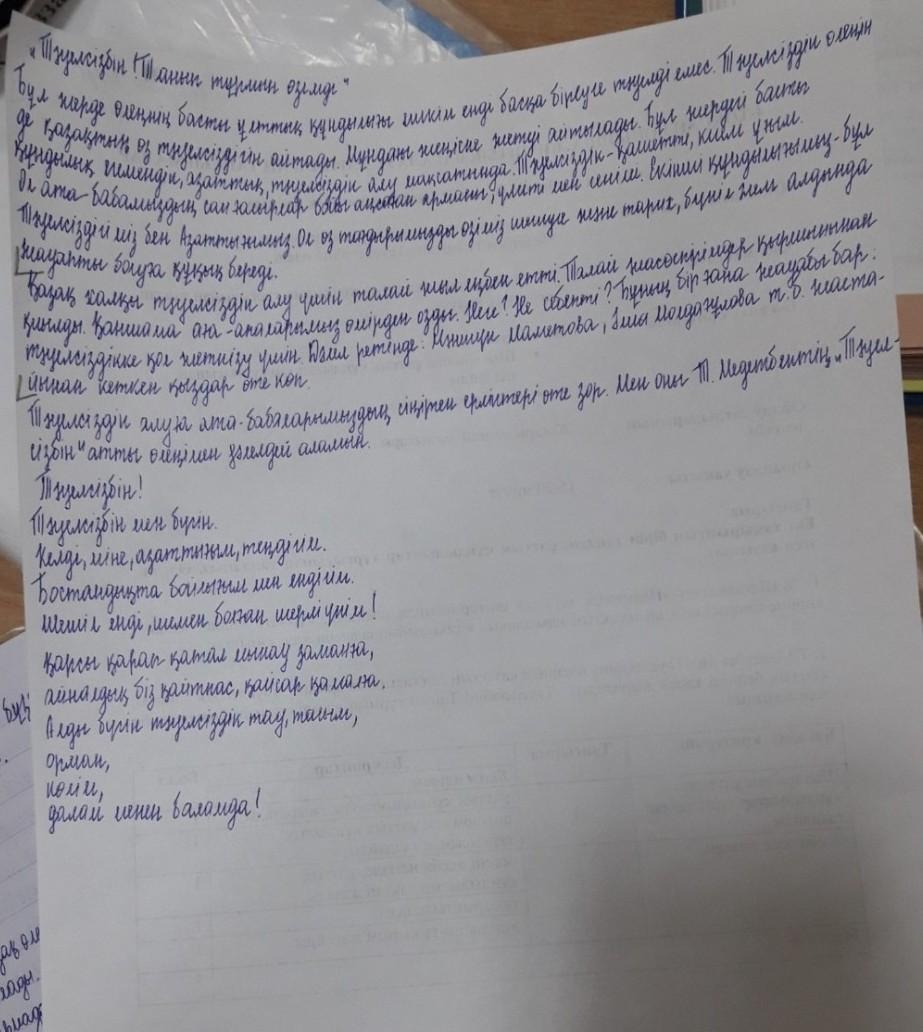 „Тәуелсізбін! Танып тұрмын өзімді"
Бұл жерде өлеңнің басты ұлттық құндылығы ешкім енді басқа біреуге тәуелді емес. Тәуелсіздік өлеңін
де қазақтың өз тәуелсіздігін айтады. Мұндағы жеңіске жетуді айтылады. Бұл жердегі басты
құндылық егемендік, азаттық, тәуелсіздік алу мақсатында. Тәуелсіздік - қасиетті, киелі ұғым.
Ол ата-бабамыздың сан ғасырлар бойы аңсаған арманы, үміті мен сенімі. Екінші құндылығымыз - бұл
Тәуелсіздігіміз бен Азаттығымыз. Ол өз тағдырымызды өзіміз шешуге және тарих, бүкіл әлем алдында
жауапты болуға құқық береді.
Қазақ халқы тәуелсіздік алу үшін талай жыл еңбек етті. Талай жасөспірімдер қыршынынан
қиылды. Қаншама аға-апаларымыз өмірден озды. Неге? Не себепті? Бұның бір ғана жауабы бар:
тәуелсіздікке қол жеткізу үшін. Дәлел ретінде: Мәншүк Маметова, Әлия Молдағұлова т.б. жаста-
йынан кеткен қыздар өте көп.
Тәуелсіздік алуға ата-бабаларымыздың сіңірген ерліктері өте зор. Мен оны Т. Медетбектің „Тәуел-
сізбін" атты өлеңімен дәлелдей аламын.
Тәуелсізбін!
Тәуелсізбін мен бүгін.
Келді, міне, азаттығым, теңдігім.
Бостандықта бойлығым мен ендігім.
Шешіл енді, шемен болған шерлі үнім!
Қарсы қарап қатал мынау заманға,
айналдық біз қайтпас, қайсар қамалға.
Алды бүгін тәуелсіздік тау, тасым,
орман,
көлім,
далам менен балам да!